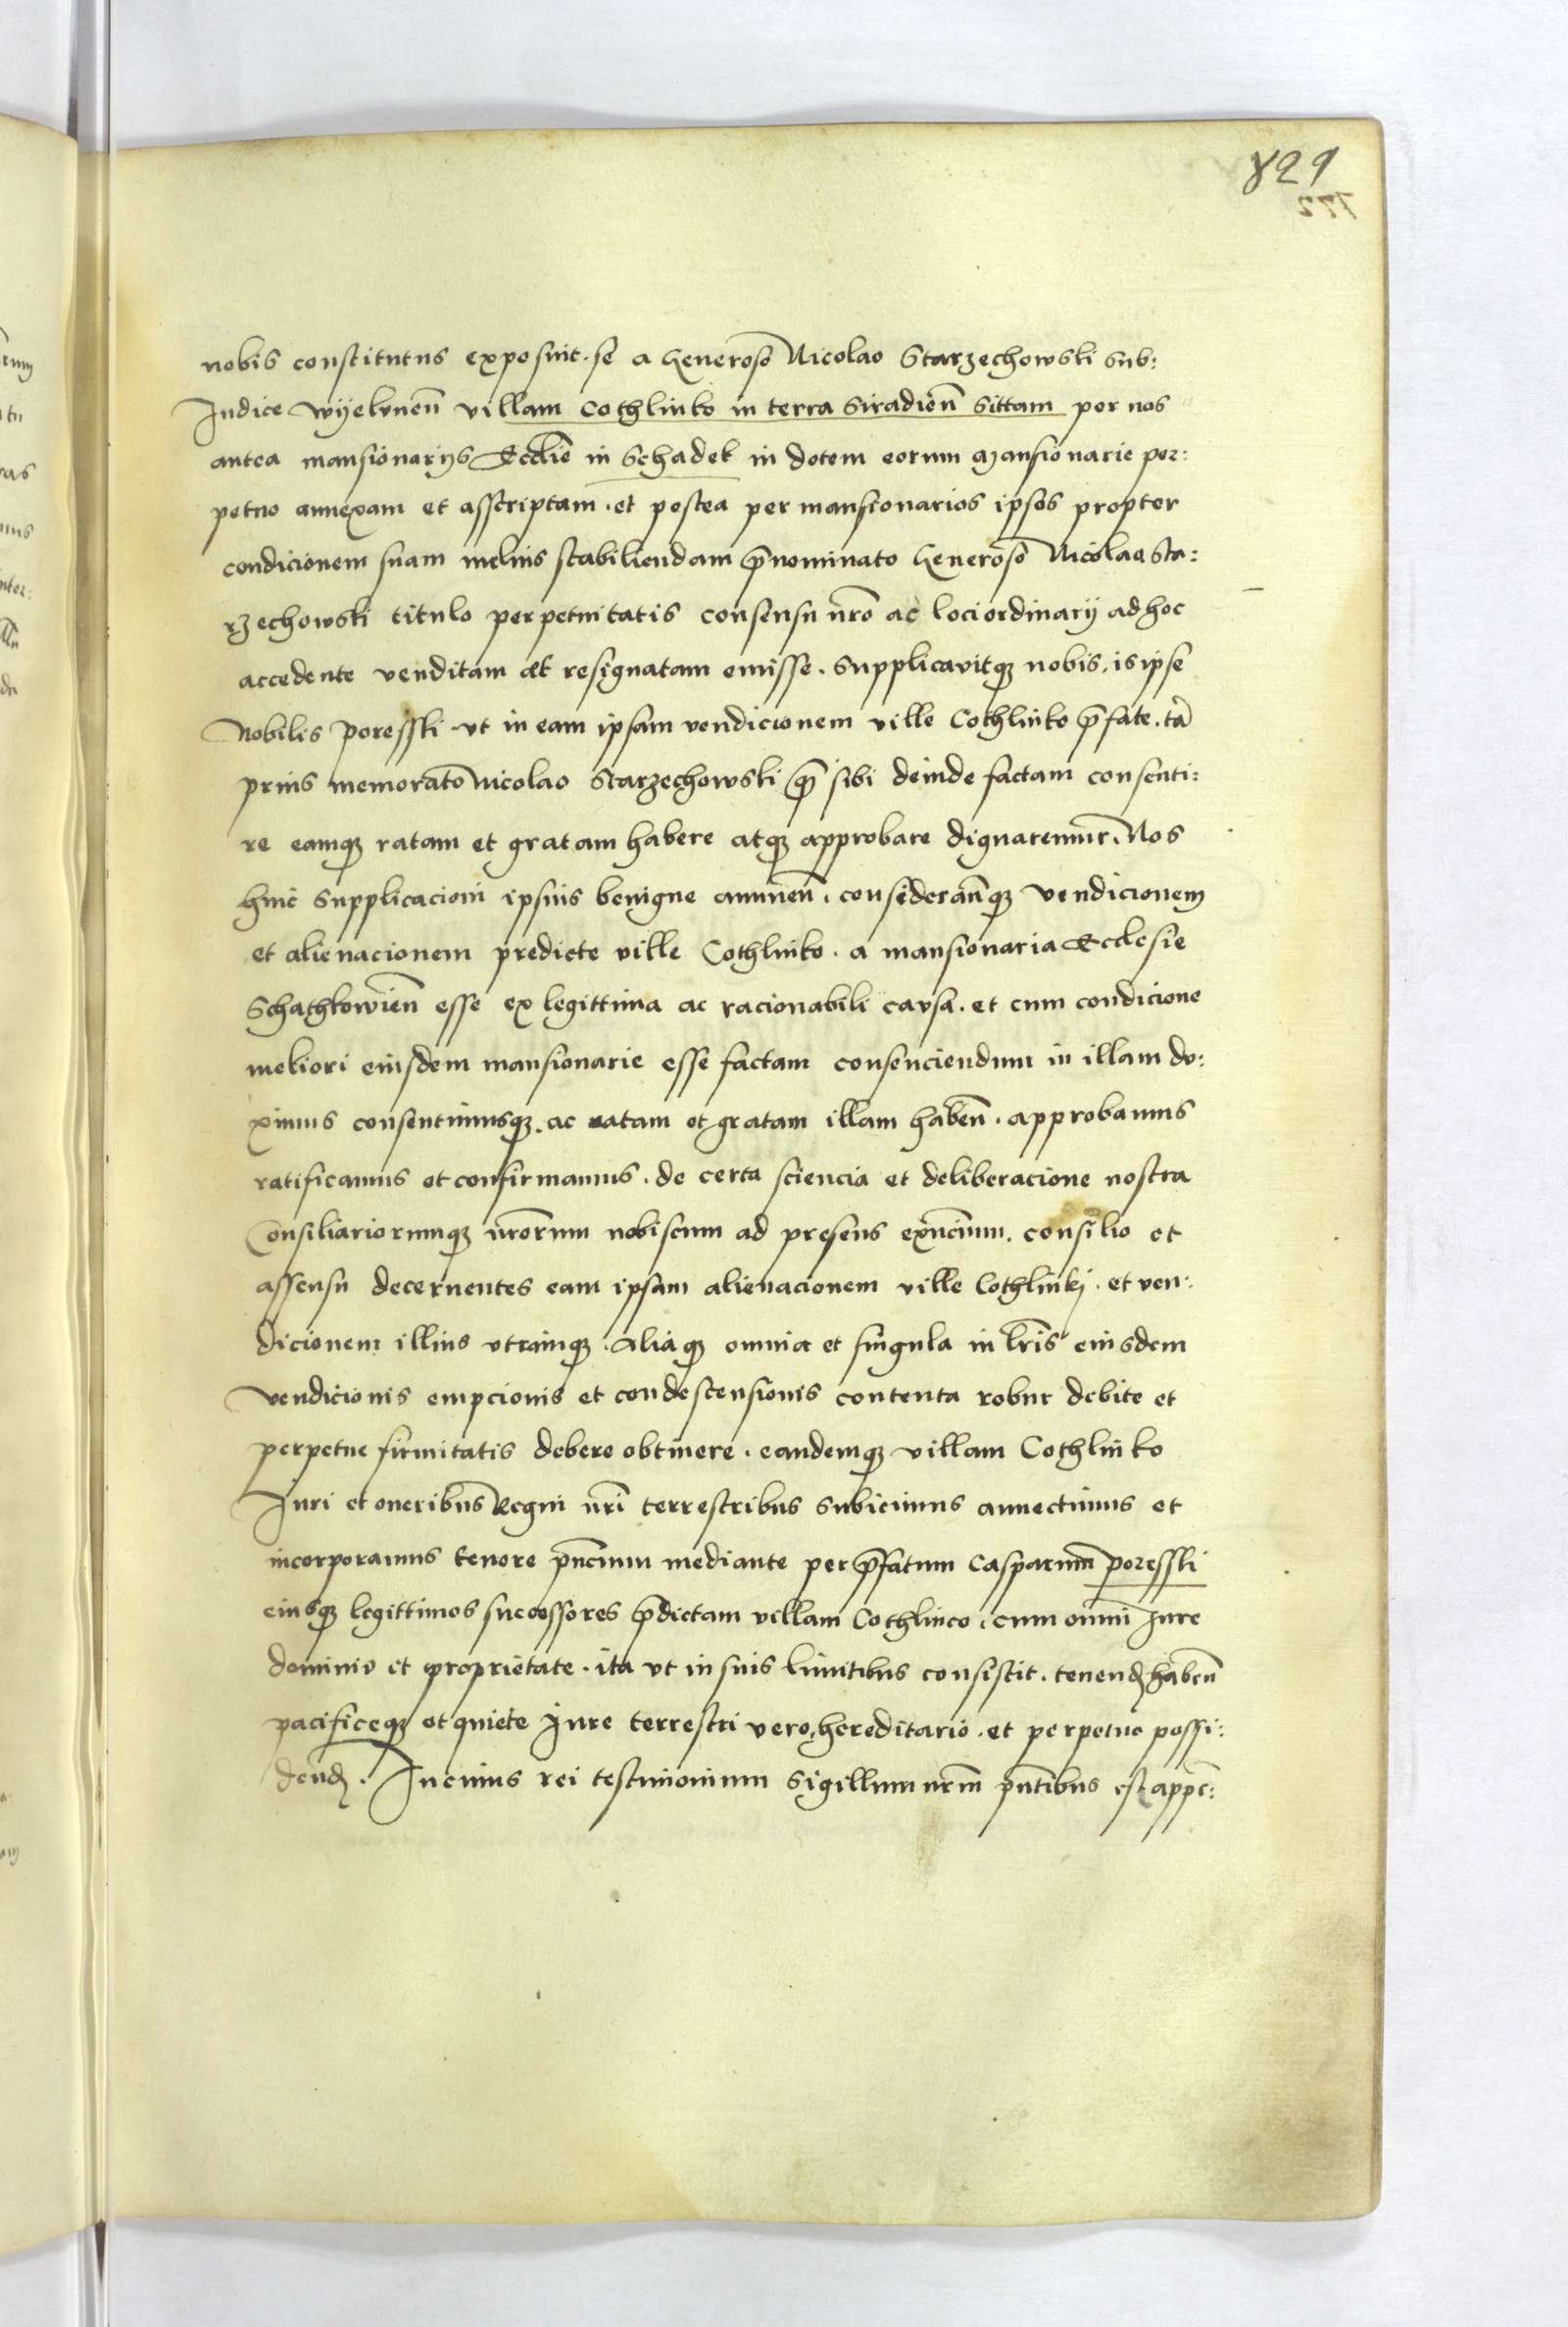 829
772
nobis constitutus exposuit. se a Generoso Nicolao Starzechowski Sub:
Iudice Wyelunen̄ villam Cothlinko in terra Siradien̄ Sittam per nos
antea mansionarys Eccl̄ie in Schadek in dotem eorum Mansionarie per:
petuo annexam et asscriptam. et postea per mansionarios ipsos propter
condicionem suam melius stabiliendam p̄nominato Generoso Nicolao Sta:
rzechowski titulo perpetuitatis consensu nr̄o ac loci ordinarij ad hoc
accedente venditam et resignatam emisse. Supplicavitqꝫ nobis. is ipse
Nobilis Poresski. vt in eam ipsam vendicionem ville Cothlinko p̄fate. tā
prius memorato Nicolao Starzechowski qꝫ sibi deinde factam consenti:
re eamqꝫ ratam et gratam habere atqꝫ approbare dignaremur. Nos
huic Supplicacioni ipsius benigne annuen̄. consideran̄qꝫ vendicionem
et alienacionem predicte ville Cothlinko. a mansionaria Ecclesie
Schathkowien̄ esse ex legittima ac racionabili causa. et cum condicione
meliori eiusdem mansionarie esse factam consenciendum in illam du:
ximus consentimusqꝫ. ac ratam et gratam illam haben̄. approbamus
ratificamus et confirmamus. de certa sciencia et deliberacione nostra
Consiliariorumqꝫ nr̄orum nobiscum ad presens exn̄cium. consilio et
assensu decernentes eam ipsam alienacionem ville Cothlinkj. et ven:
dicionem illius vtramqꝫ. aliaqꝫ omnia et singula in lr̄is eiusdem
vendicionis empcionis et condescensionis contenta robur debite et
perpetue firmitatis debere obtinere. eandemqꝫ villam Cothlinko
Iuri et oneribus Regni nr̄i terrestribus Subicimus annectimus et
incorporamus tenore pn̄cium mediante per p̄fatum Casparum Poresski
eiusqꝫ legittimos successores p̄dictam villam Cothlinco. cum omni Iure
dominio et proprietate. ita vt in suis limitibus consistit. tenend haben̄
pacificeqꝫ et quiete Iure terrestri vero hereditario. et perpetuo possi:
dend. In cuius rei testimonium Sigillum nr̄m pn̄tibus est appē: